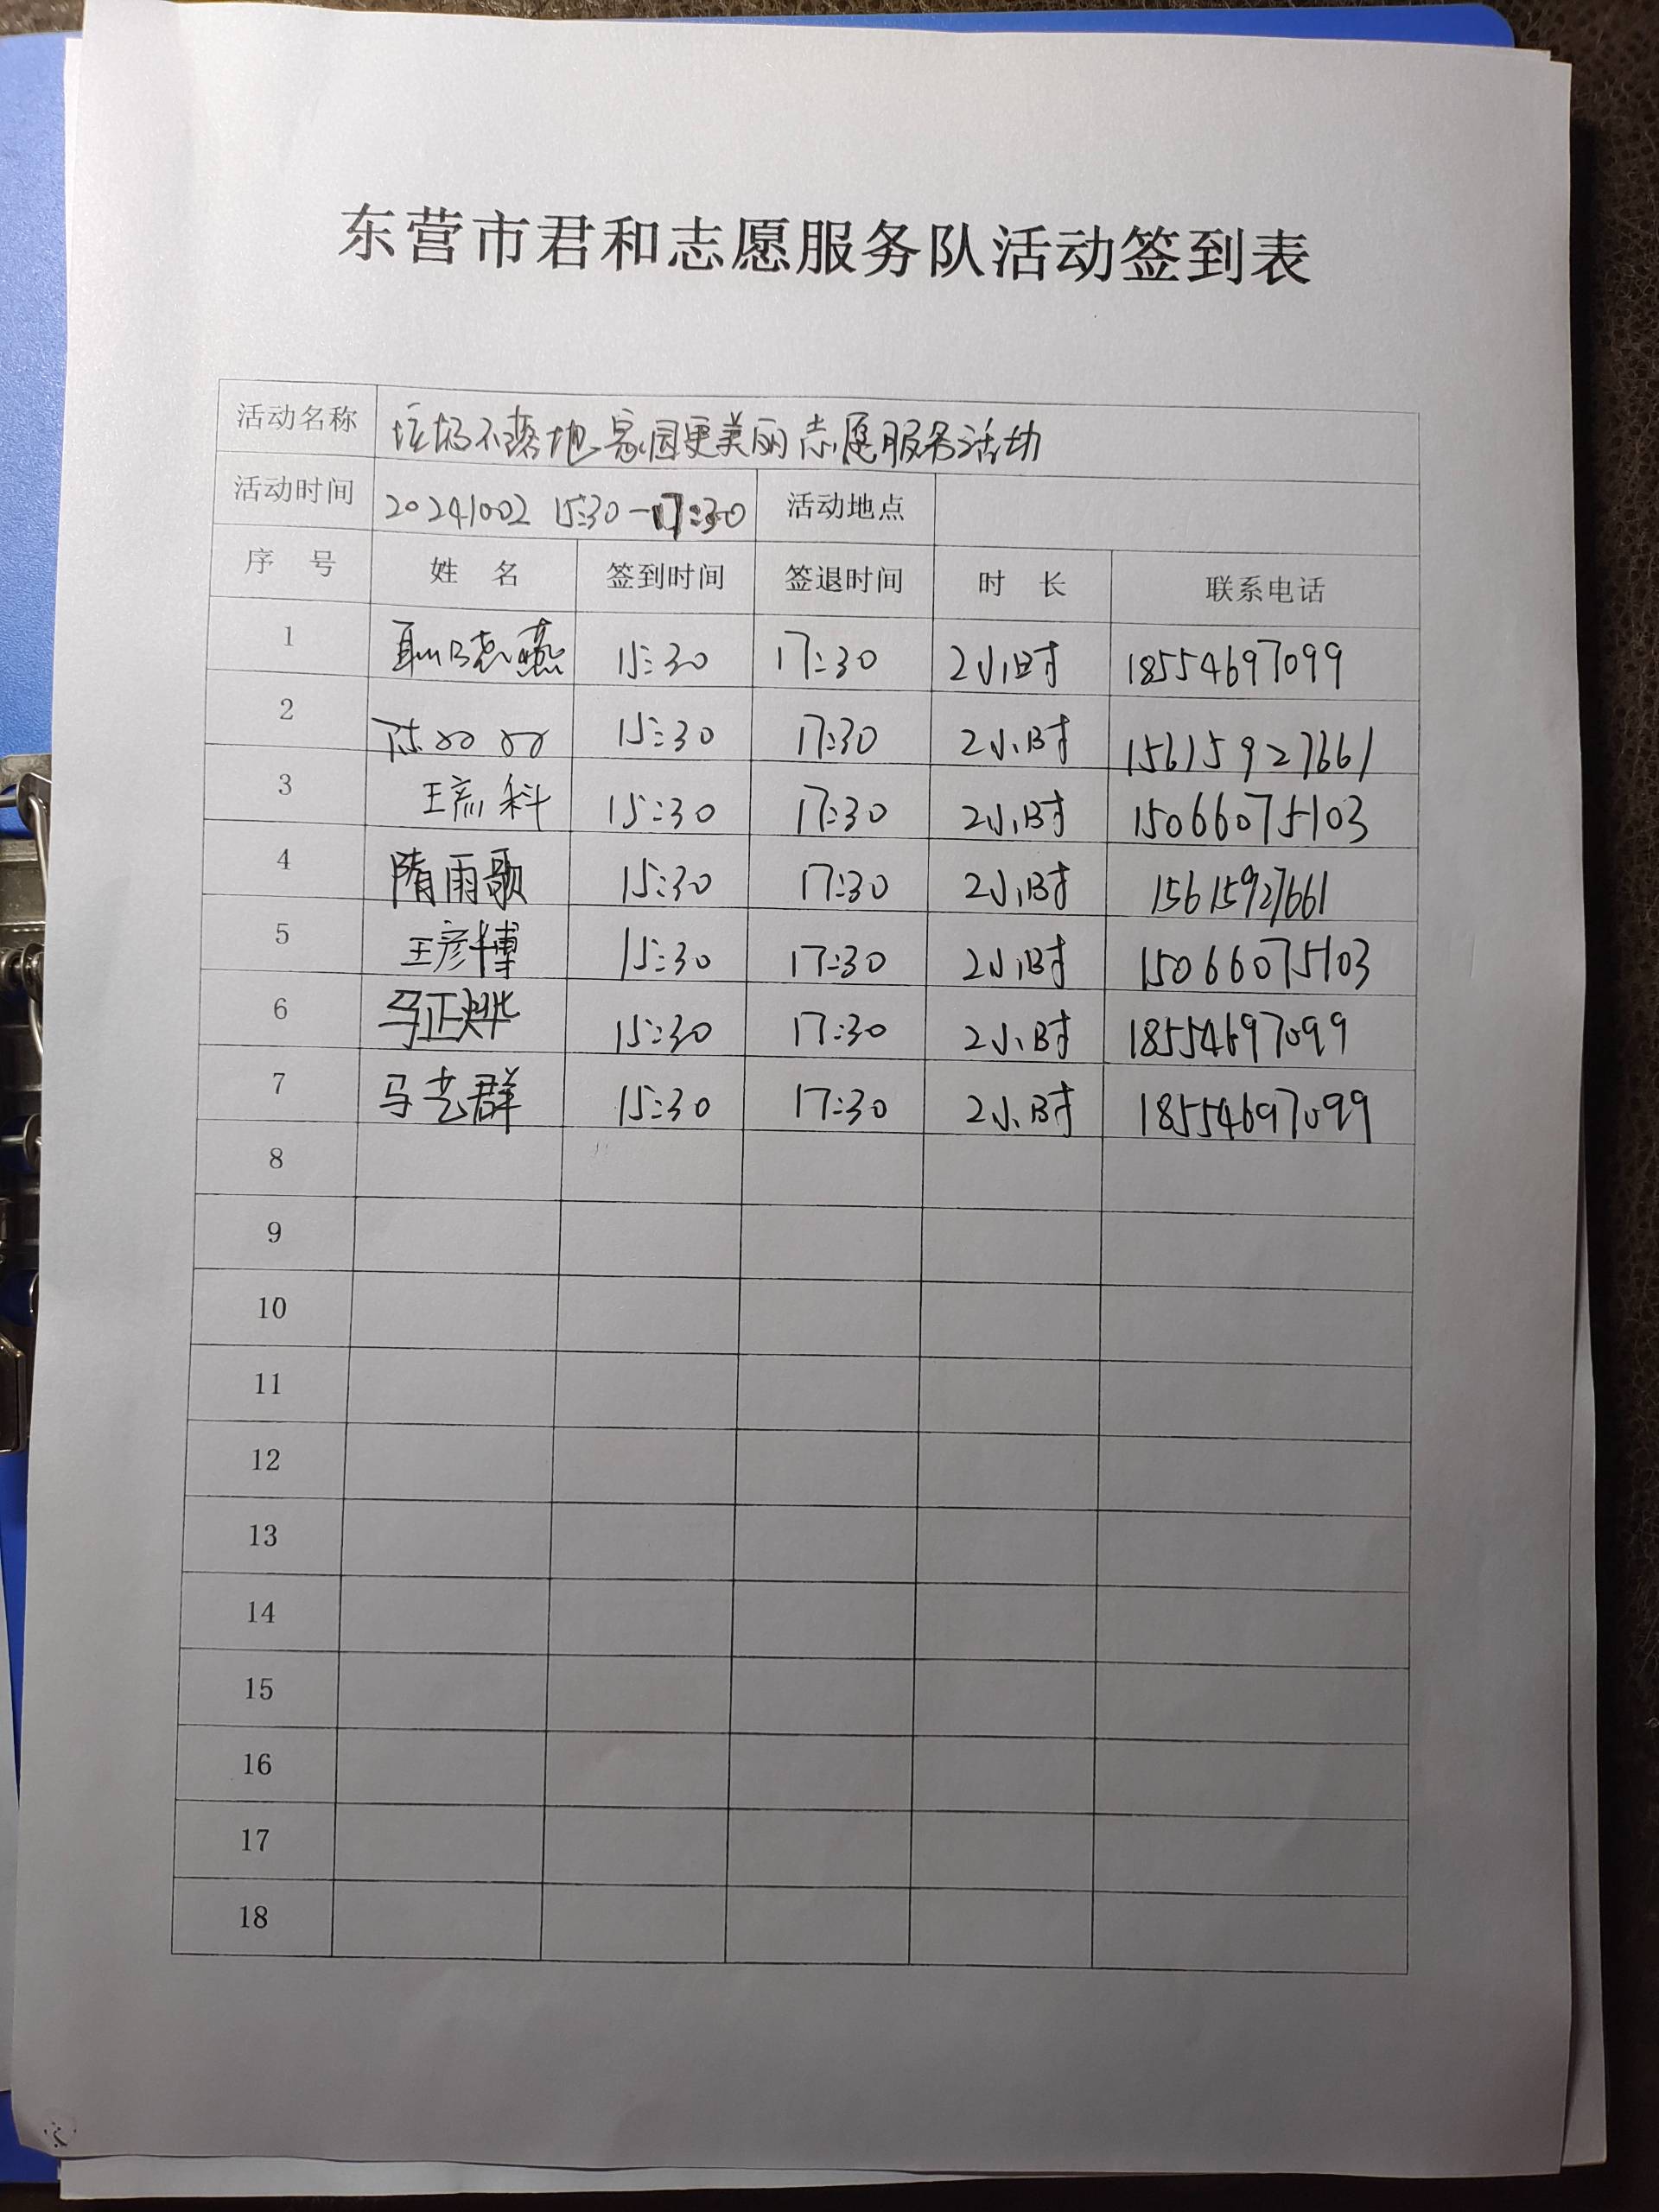 东营市君和志愿服务队活动签到表
活动名称 垃圾不落地家园更美丽志愿服务活动
活动时间 20241002 15:30-17:30 活动地点
序 号 姓 名 签到时间 签退时间 时 长 联系电话
1 晓燕 15:30 17:30 2小时 18554697099
2 陈 15:30 17:30 2小时 15615927661
3 王 科 15:30 17:30 2小时 15066075103
4 隋雨歌 15:30 17:30 2小时 15615927661
5 王彦博 15:30 17:30 2小时 15066075103
6 马正烨 15:30 17:30 2小时 18554697099
7 马艺群 15:30 17:30 2小时 18554697099
8
9
10
11
12
13
14
15
16
17
18